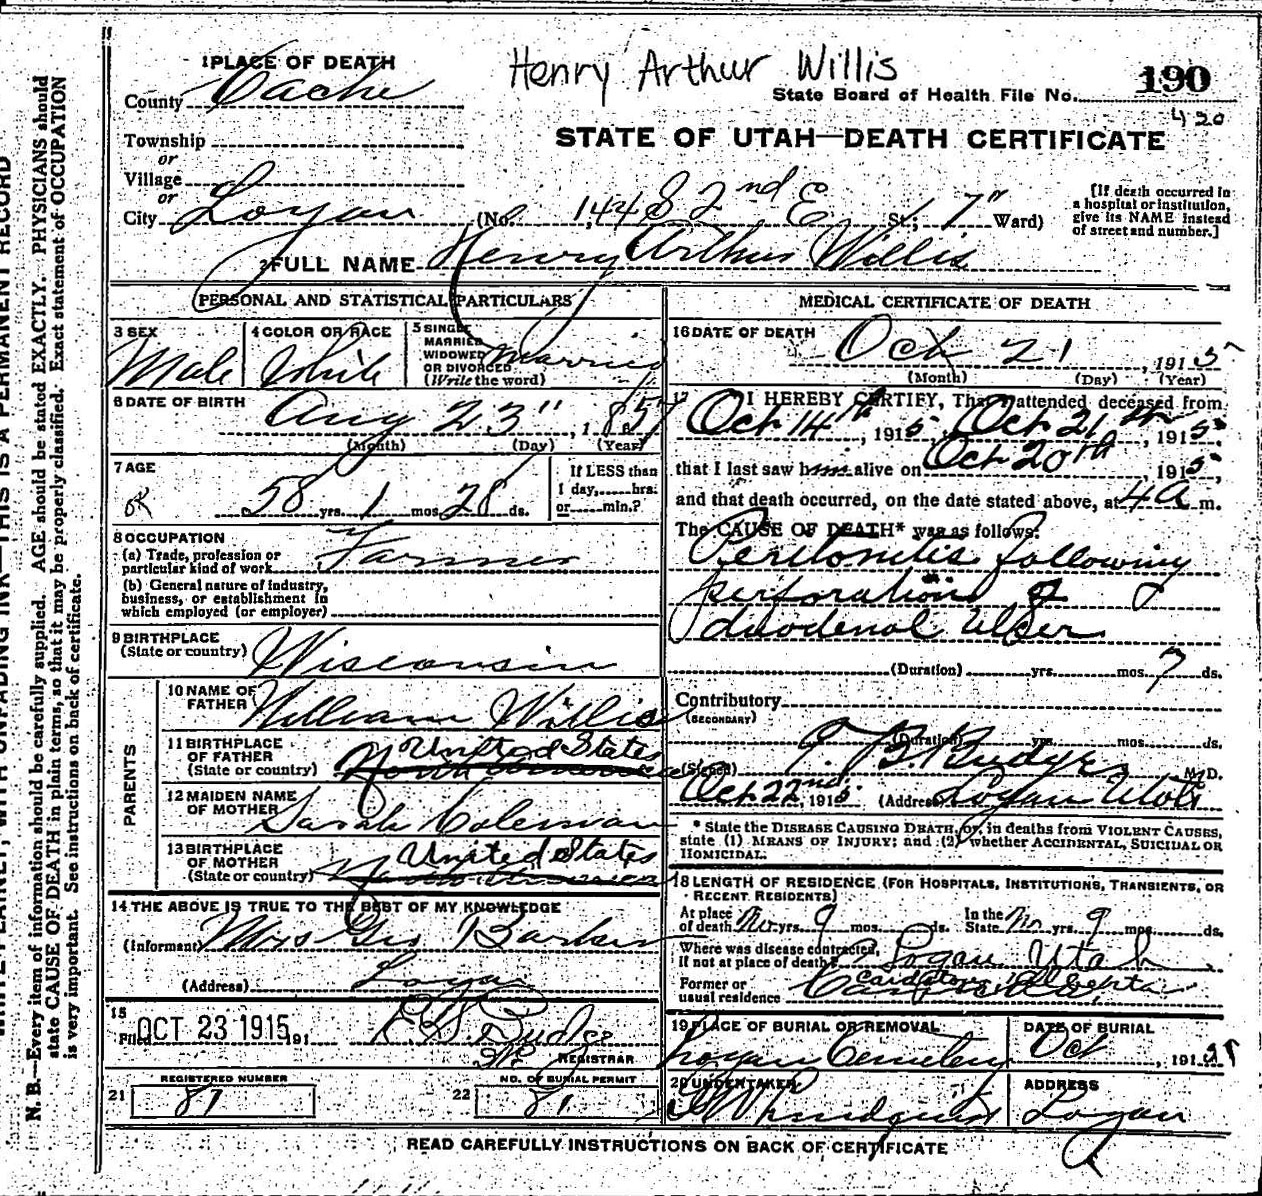 Henry Arthur Willis
190
State Board of Health File No.
420
STATE OF UTAH—DEATH CERTIFICATE
1 PLACE OF DEATH
County Cache
Township
or
Village
or
City Logan (No. 144 S 2nd E St.; 7" Ward)
[If death occurred in a hospital or institution, give its NAME instead of street and number.]
2 FULL NAME Henry Arthur Willis
PERSONAL AND STATISTICAL PARTICULARS
3 SEX
Male
4 COLOR OR RACE
White
5 SINGLE
MARRIED
WIDOWED
OR DIVORCED
(Write the word)
Married
6 DATE OF BIRTH
Aug 23", 1857
(Month) (Day) (Year)
7 AGE
OK 58 yrs. 1 mos. 28 ds.
If LESS than
1 day,......hrs.
or......min.?
8 OCCUPATION
(a) Trade, profession or
particular kind of work Farmer
(b) General nature of industry,
business, or establishment in
which employed (or employer)
9 BIRTHPLACE
(State or country) Wisconsin
PARENTS
10 NAME OF
FATHER William Willis
11 BIRTHPLACE
OF FATHER
(State or country) United States
12 MAIDEN NAME
OF MOTHER Sarah Coleman
13 BIRTHPLACE
OF MOTHER
(State or country) United States
14 THE ABOVE IS TRUE TO THE BEST OF MY KNOWLEDGE
(Informant) Mrs Geo Barker
(Address) Logan
15
Filed OCT 23 1915, 191
REGISTRAR
REGISTERED NUMBER
21 87
NO. OF BURIAL PERMIT
22 81
MEDICAL CERTIFICATE OF DEATH
16 DATE OF DEATH
Oct 21, 1915
(Month) (Day) (Year)
17 I HEREBY CERTIFY, That I attended deceased from
Oct 14th, 1915, Oct 21st, 1915,
that I last saw him alive on Oct 20th, 1915,
and that death occurred, on the date stated above, at 4 a m.
The CAUSE OF DEATH* was as follows:
Peritonitis following
perforation of
duodenal ulcer
(Duration) yrs. mos. 7 ds.
Contributory
(SECONDARY)
(Duration) yrs. mos. ds.
(Signed) Budge M.D.
Oct 22nd, 1915 (Address) Logan Utah
* State the DISEASE CAUSING DEATH, or, in deaths from VIOLENT CAUSES,
state (1) MEANS OF INJURY; and (2) whether ACCIDENTAL, SUICIDAL OR
HOMICIDAL.
18 LENGTH OF RESIDENCE (FOR HOSPITALS, INSTITUTIONS, TRANSIENTS, OR
RECENT RESIDENTS)
At place of death yrs. 9 mos. ds. In the State yrs. 9 mos. ds.
Where was disease contracted,
if not at place of death? Logan Utah
Former or
usual residence Cardston, Alberta
19 PLACE OF BURIAL OR REMOVAL
Logan Cemetery
DATE OF BURIAL
Oct, 191
20 UNDERTAKER
Lindquist
ADDRESS
Logan
READ CAREFULLY INSTRUCTIONS ON BACK OF CERTIFICATE
THIS IS A PERMANENT RECORD
N. B.—Every item of information should be carefully supplied. AGE should be stated EXACTLY. PHYSICIANS should
state CAUSE OF DEATH in plain terms, so that it may be properly classified. Exact statement of OCCUPATION
is very important. See instructions on back of certificate.